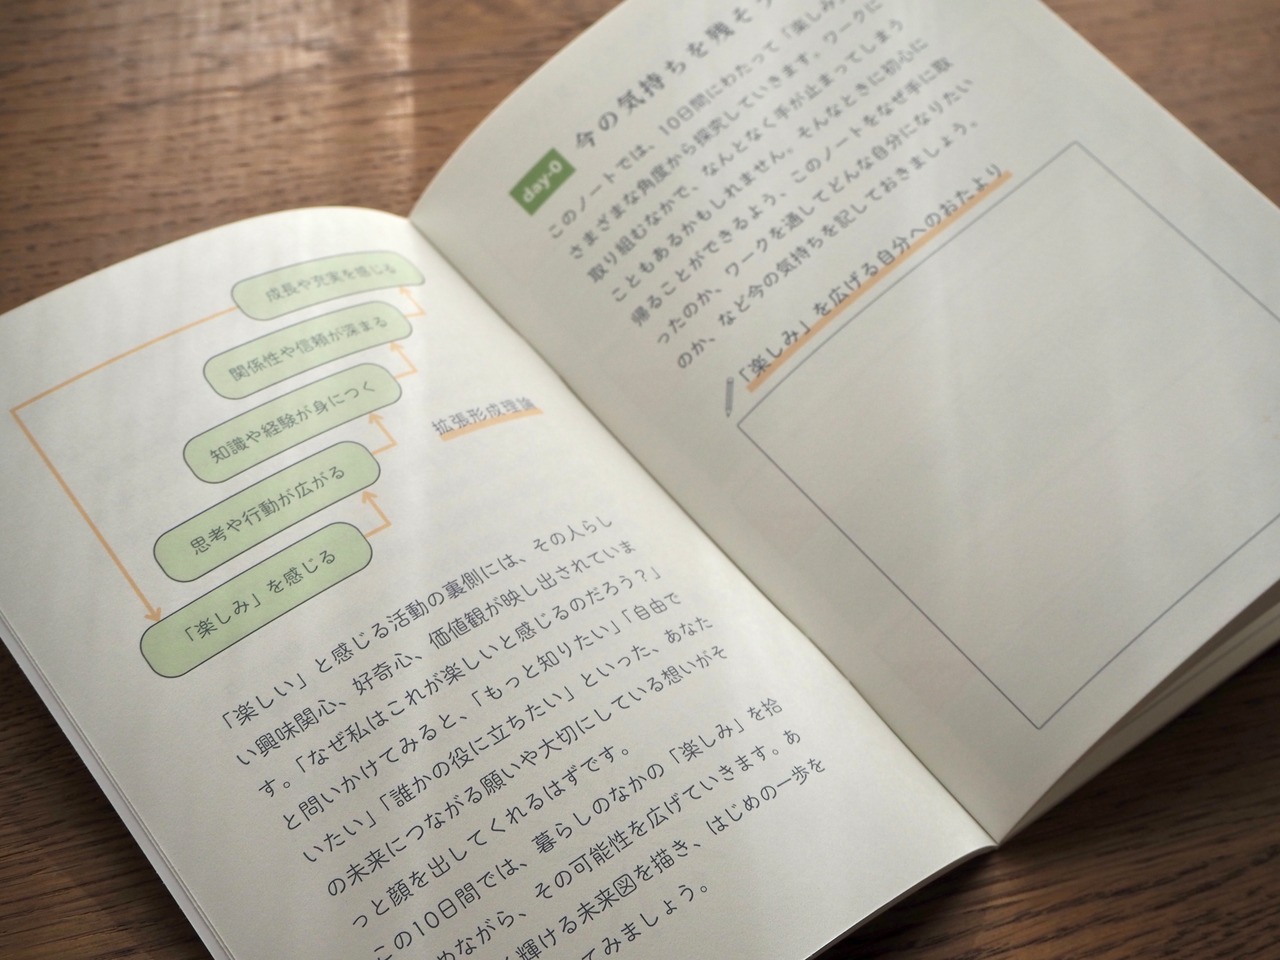 成長や充実を感じる
関係性や信頼が深まる
知識や経験が身につく
思考や行動が広がる
「楽しみ」を感じる
拡張形成理論
「楽しい」と感じる活動の裏側には、その人らし
い興味関心、好奇心、価値観が映し出されていま
す。「なぜ私はこれが楽しいと感じるのだろう？」
と問いかけてみると、「もっと知りたい」「自由で
いたい」「誰かの役に立ちたい」といった、あなた
の未来につながる願いや大切にしている想いがそ
っと顔を出してくれるはずです。
この10日間では、暮らしのなかの「楽しみ」を拾
めながら、その可能性を広げていきます。あ
輝ける未来図を描き、はじめの一歩を
てみましょう。
day-0
今の気持ちを残そう
このノートでは、10日間にわたって「楽しみ」
さまざまな角度から探究していきます。ワークに
取り組むなかで、なんとなく手が止まってしまう
こともあるかもしれません。そんなときに初心に
帰ることができるよう、このノートをなぜ手に取
ったのか、ワークを通してどんな自分になりたい
のか、など今の気持ちを記しておきましょう。
「楽しみ」を広げる自分へのおたより